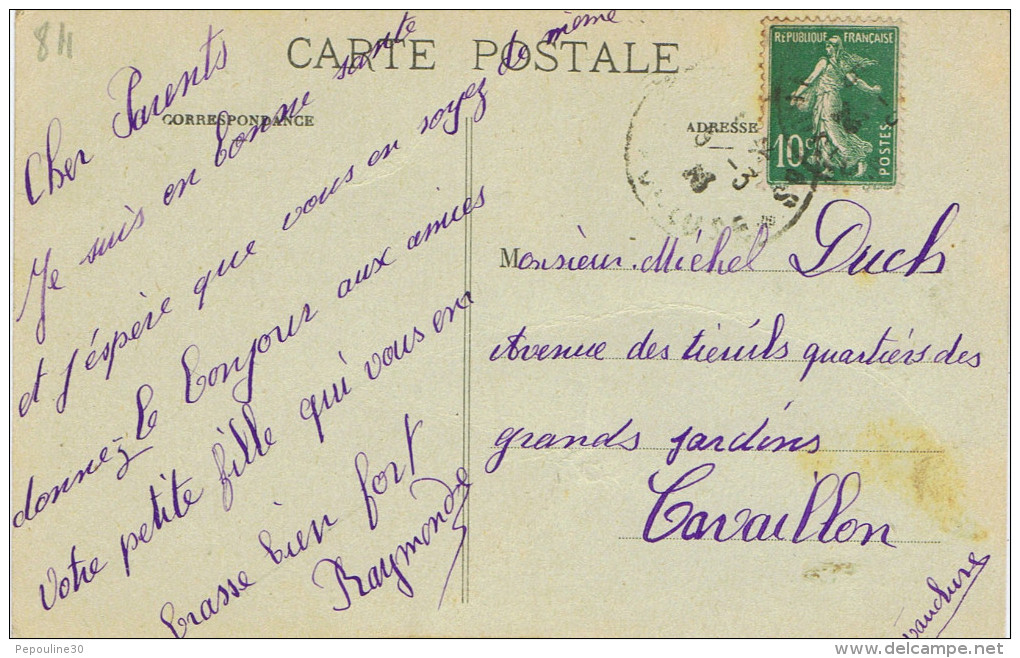 84
CARTE POSTALE
CORRESPONDANCE
ADRESSE
REPUBLIQUE FRANÇAISE
10c
POSTES
Cher Parents
Je suis en bonne sante
et j'éspère que vous en soyez de même
donnez le bonjour aux amies
votre petite fille qui vous en
brasse bien fort
Raymonde
Monsieur Michel Duch
Avenue des quartiers des
grands jardins
Cavaillon
vaucluse
Pepouline30
delcampe.net